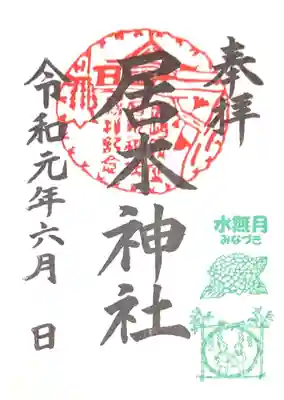 奉拝
居木神社
令和元年六月 日
水無月
みなづき